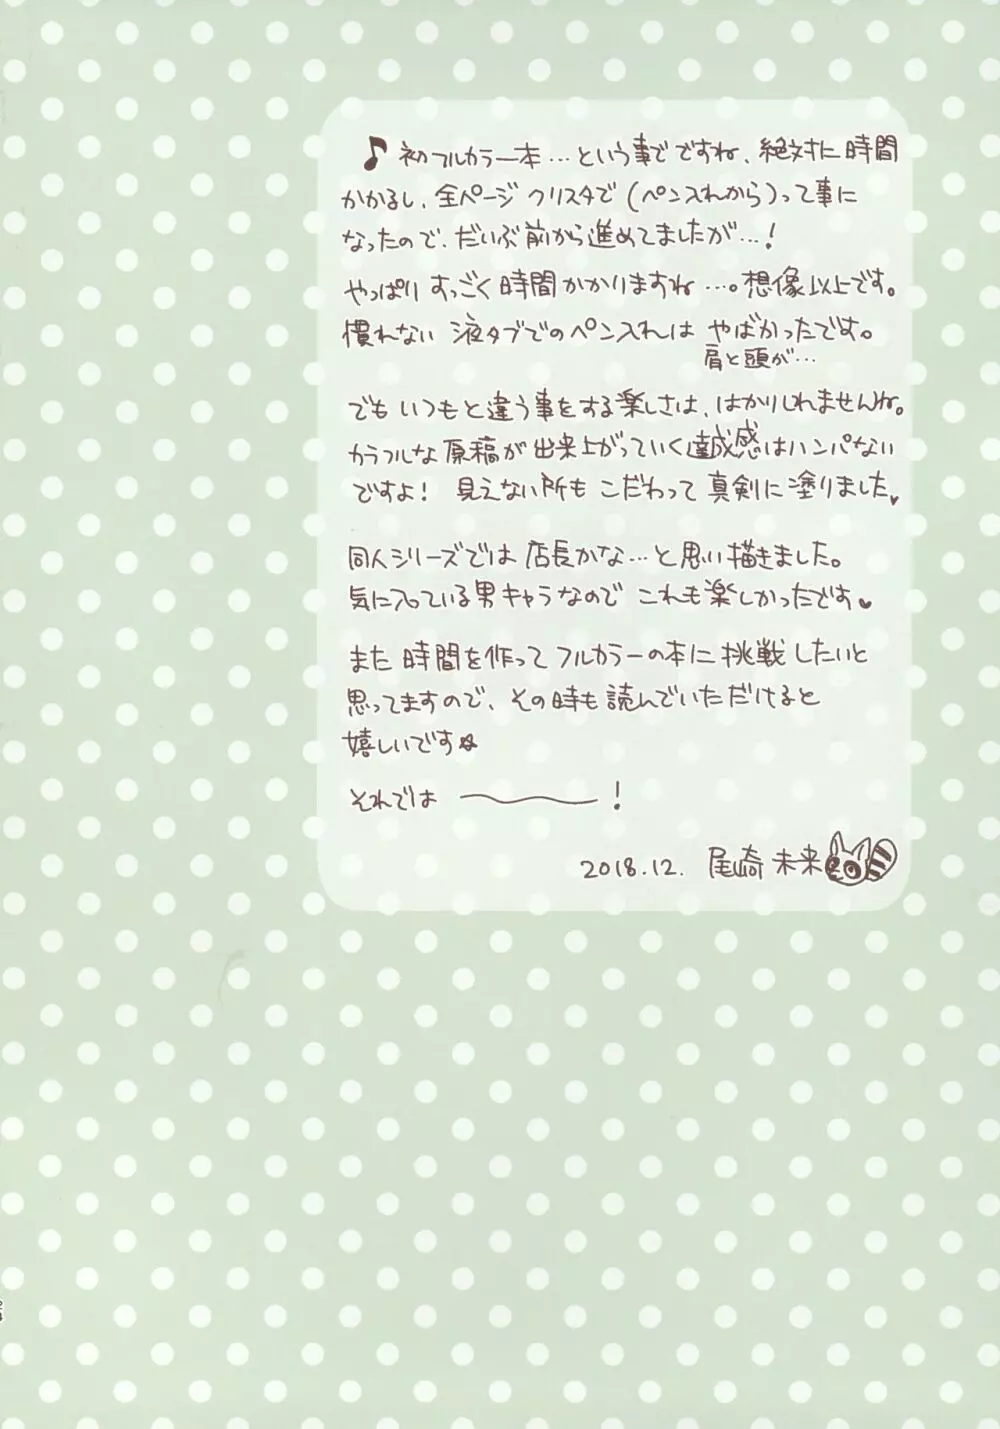 ♪ 初フルカラー本…という事でですね、絶対に時間
かかるし、全ページ クリスタで(ペン入れから)って事に
なったので、だいぶ前から進めてましたが…!
やっぱり すっごく時間かかりますね…。想像以上です。
慣れない 液タブでのペン入れは やばかったです。
肩と頭が…
でも いつもと違う事をする楽しさは、はかりしれませんね。
カラフルな 原稿が 出来上がっていく達成感はハンパない
ですよ! 見えない所も こだわって 真剣に塗りました♥
同人シリーズでは 店長かな…と思い描きました。
気に入っている男キャラなので これも楽しかったです♥
また 時間を作って フルカラーの本に 挑戦したいと
思ってますので、その時も読んでいただけると
嬉しいです☆
それでは ～～～!
2018.12. 尾崎 未来
24